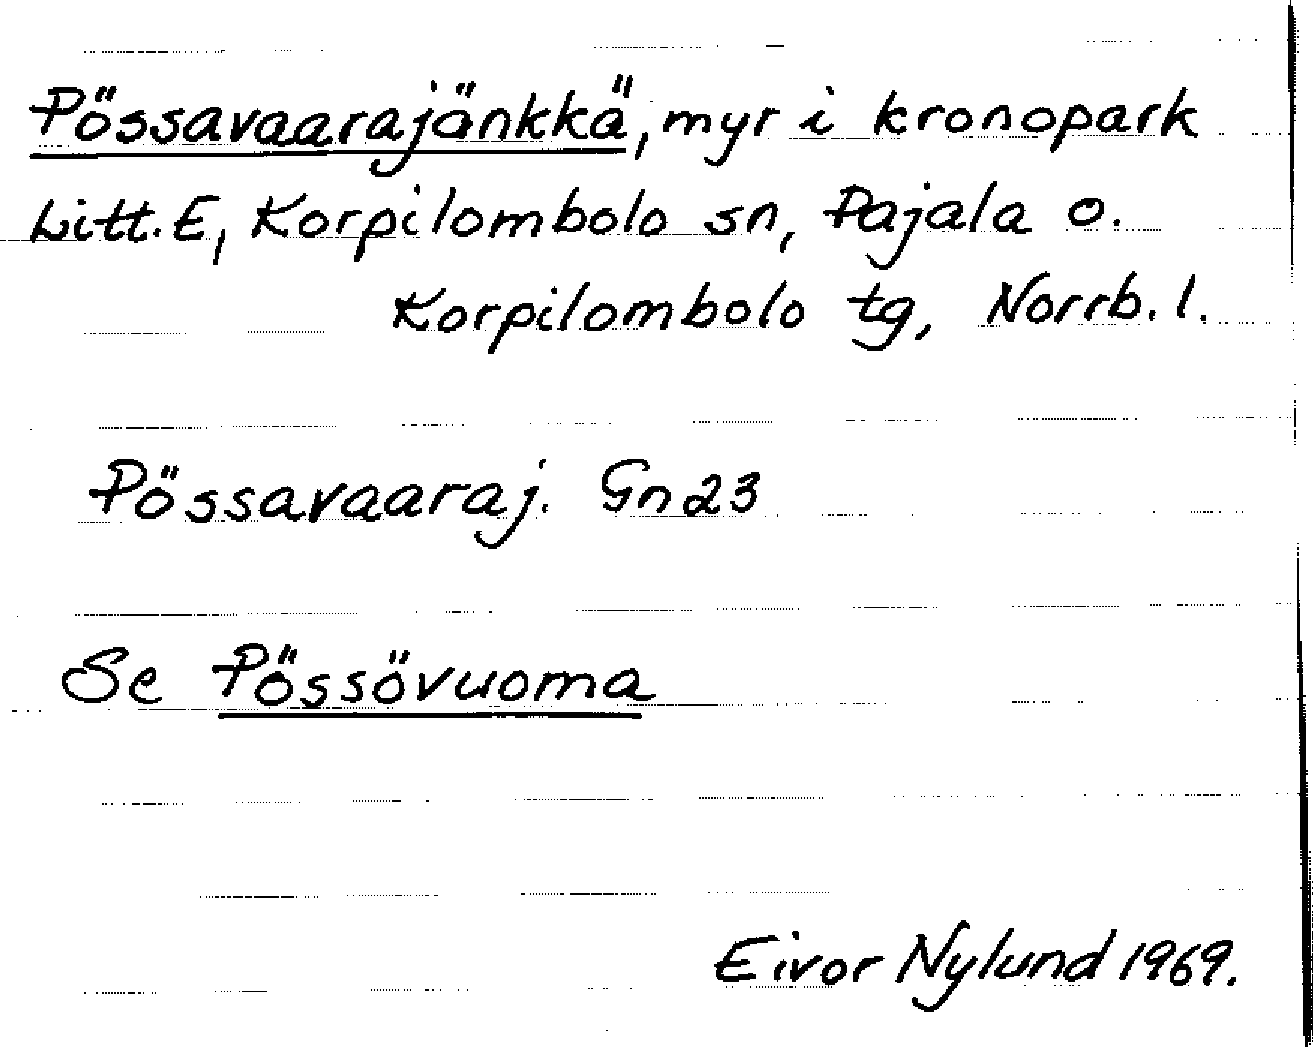 Pössavaarajänkkä, myr i kronopark
Litt. E, Korpilombolo sn, Pajala o.
Korpilombolo tg, Norrb. l.
Pössavaaraj. Gn23
Se Pössövuoma
Eivor Nylund 1969.